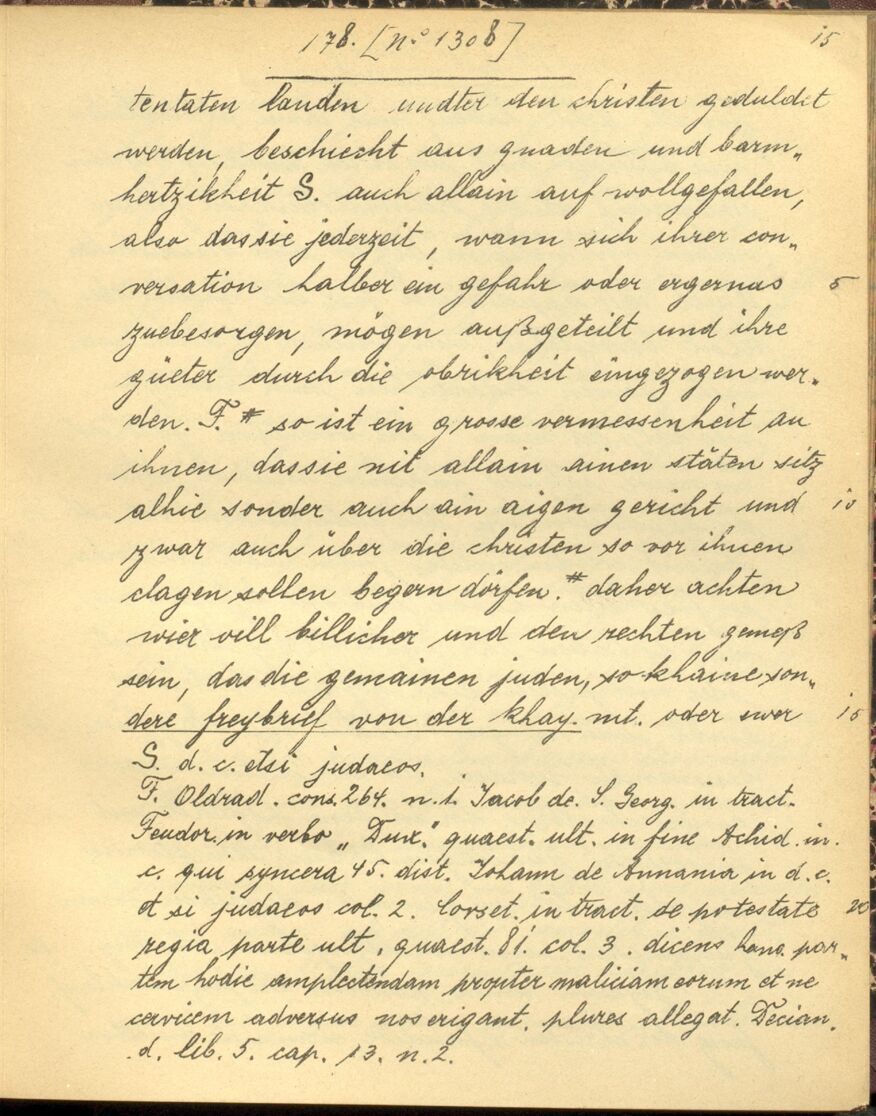 178. [nº 1308] 15
tentaten landen undter den christen geduldet
werden, beschiecht aus gnaden und barm„
hertzikheit S. auch allain auf wollgefallen,
also das sie jederzeit, wann sich ihrer con„
versation halber ein gefahr oder ergernus 5
zuebesorgen, mögen außgeteilt und ihre
güeter durch die obrikheit eingezogen wer„
den. F. # so ist ein grosse vermessenheit an
ihnen, das sie nit allain ainen stäten sitz
alhie sonder auch ain aigen gericht und 10
zwar auch über die christen so vor ihnen
clagen sollen begern dörfen. # daher achten
wier vill billicher und den rechten gemeß
sein, das die gemainen juden, so khaine son„
dere freybrief von der khay. mt. oder ewer 15
S. d. c. etsi judaeos.
F. Oldrad. cons. 264. n. 1. Jacob de. S. Georg. in tract.
Feudor. in verbo „Dux." quaest. ult. in fine Achid. in.
c. qui syncera 45. dist. Johann de Annania in d. c.
et si judaeos col. 2. Corset. in tract. de potestate 20
regia parte ult. quaest. 81. col. 3. dicens hanc par„
tem hodie amplectendam propter maliciam eorum et ne
cervicem adversus nos erigant. plures allegat. Decian.
d. lib. 5. cap. 13. n. 2.